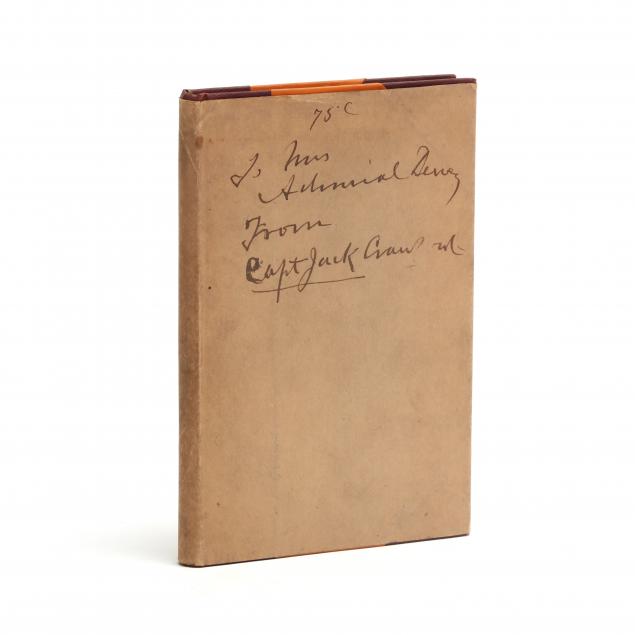 75 c
To Mrs
Admiral Dewey
From
Capt Jack Crawford